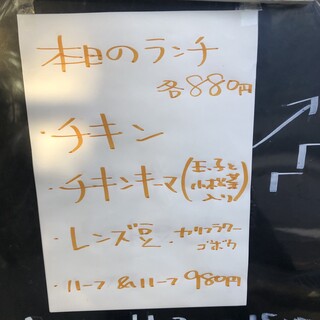 本日のランチ
各880円
・チキン
・チキンキーマ(玉子と小松菜入り)
・レンズ豆・カリフラワーゴボウ
・ハーフ&ハーフ 980円